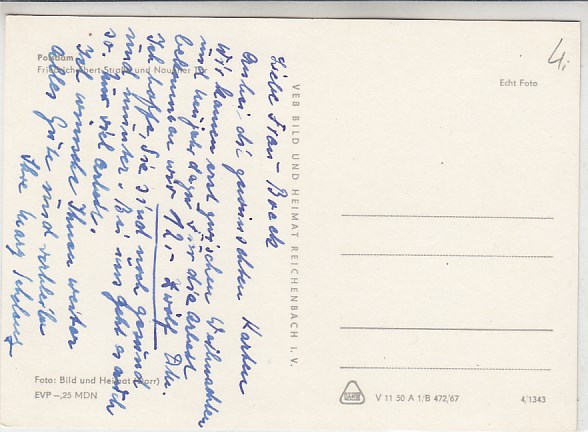 Potsdam
Friedrich-Ebert-Straße und Nauener Tor
Liebe Frau Boeck
Anbei die gewünschten Karten
wir kamen erst zwischen Weihnachten
und Neujahr dazu. Für die Arbeit
bekommen wir 12.- zwölf DM.
Ich hoffe, Sie sind noch gesund
und munter. Bei uns geht es auch
so. Nur viel Arbeit.
Ich wünsche Ihnen weiter
alles Gute und verbleibe
Ihre Marg
VEB BILD UND HEIMAT REICHENBACH I. V.
4,
Echt Foto
Foto: Bild und Heimat (Darr)
EVP –,25 MDN
V 11 50 A 1/B 472/67
4/1343